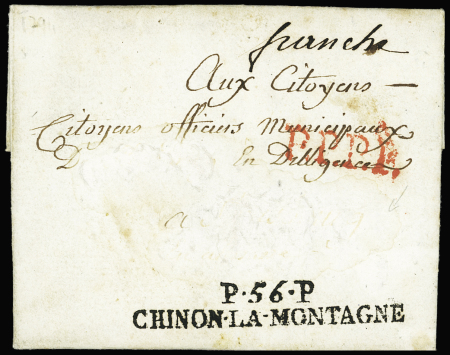 1791
franche
Aux Citoyens —
Citoyens officiers Municipaux
D En Dilligence
P·56·P
CHINON·LA·MONTAGNE